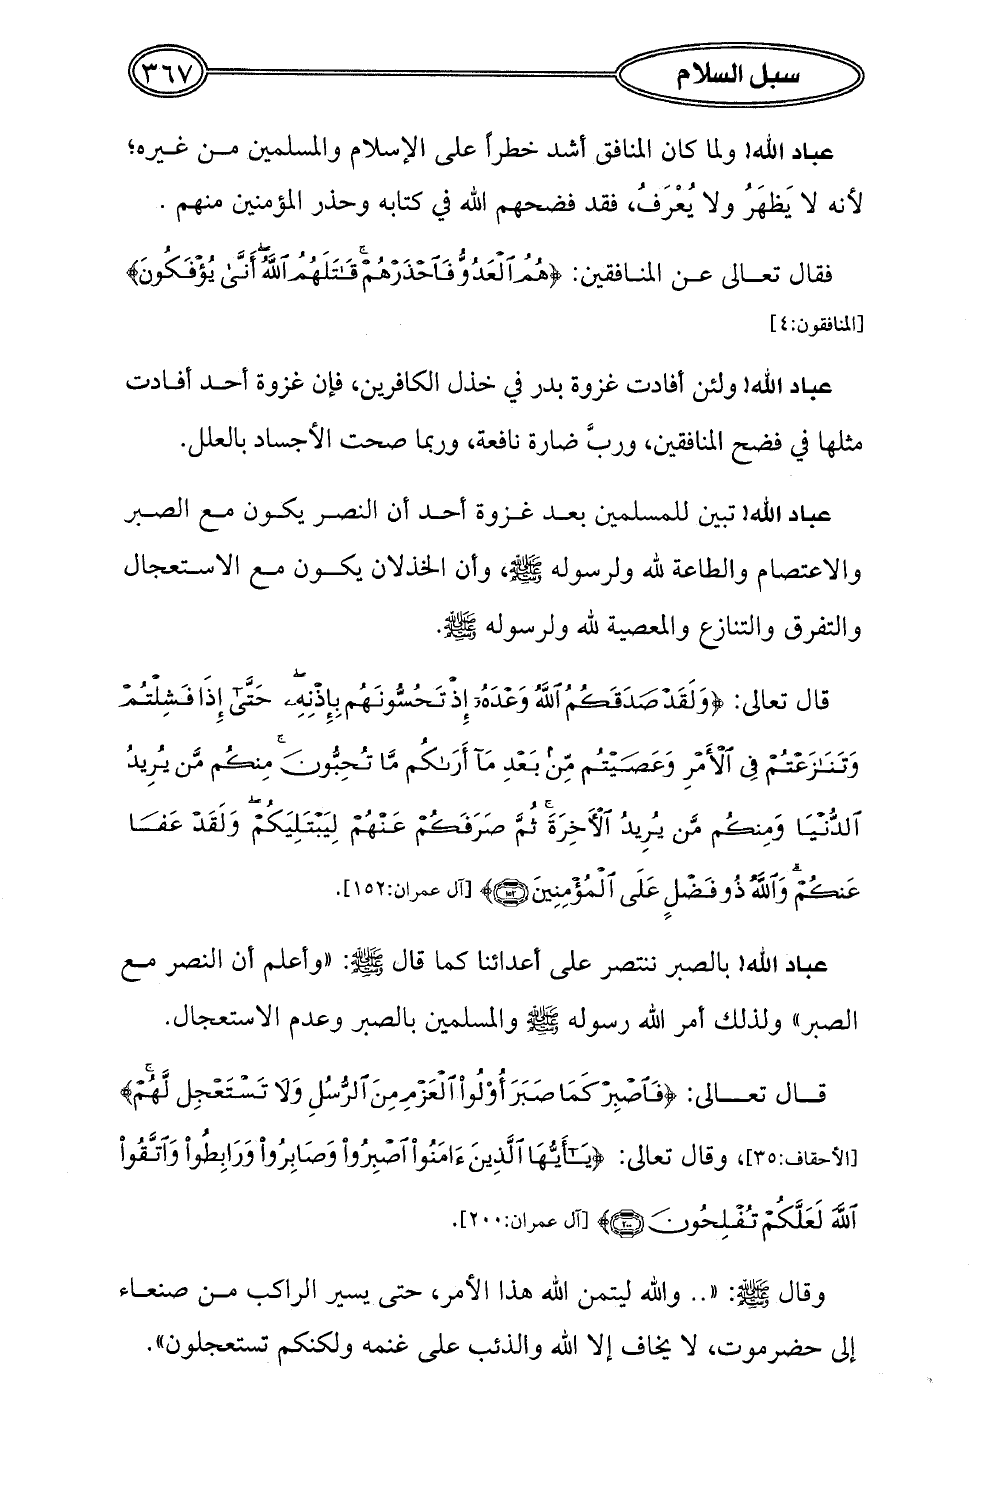 سبل السلام ٣٦٧
عباد الله! ولما كان المنافق أشد خطراً على الإسلام والمسلمين من غيره؛
لأنه لا يَظهَرُ ولا يُعْرَفُ، فقد فضحهم الله في كتابه وحذر المؤمنين منهم .
فقال تعالى عن المنافقين: ﴿هُمُ ٱلۡعَدُوُّ فَٱحۡذَرۡهُمۡۚ قَٰتَلَهُمُ ٱللَّهُۖ أَنَّىٰ يُؤۡفَكُونَ﴾
[المنافقون:٤]
عباد الله! ولئن أفادت غزوة بدر في خذل الكافرين، فإن غزوة أحد أفادت
مثلها في فضح المنافقين، وربَّ ضارة نافعة، وربما صحت الأجساد بالعلل.
عباد الله! تبين للمسلمين بعد غزوة أحد أن النصر يكون مع الصبر
والاعتصام والطاعة لله ولرسوله ﷺ، وأن الخذلان يكون مع الاستعجال
والتفرق والتنازع والمعصية لله ولرسوله ﷺ.
قال تعالى: ﴿وَلَقَدۡ صَدَقَكُمُ ٱللَّهُ وَعۡدَهُۥٓ إِذۡ تَحُسُّونَهُم بِإِذۡنِهِۦۖ حَتَّىٰٓ إِذَا فَشِلۡتُمۡ
وَتَنَٰزَعۡتُمۡ فِي ٱلۡأَمۡرِ وَعَصَيۡتُم مِّنۢ بَعۡدِ مَآ أَرَىٰكُم مَّا تُحِبُّونَۚ مِنكُم مَّن يُرِيدُ
ٱلدُّنۡيَا وَمِنكُم مَّن يُرِيدُ ٱلۡأٓخِرَةَۚ ثُمَّ صَرَفَكُمۡ عَنۡهُمۡ لِيَبۡتَلِيَكُمۡۖ وَلَقَدۡ عَفَا
عَنكُمۡۗ وَٱللَّهُ ذُو فَضۡلٍ عَلَى ٱلۡمُؤۡمِنِينَ ١٥٢﴾ [آل عمران:١٥٢].
عباد الله! بالصبر ننتصر على أعدائنا كما قال ﷺ: «وأعلم أن النصر مع
الصبر» ولذلك أمر الله رسوله ﷺ والمسلمين بالصبر وعدم الاستعجال.
قال تعالى: ﴿فَٱصۡبِرۡ كَمَا صَبَرَ أُوْلُواْ ٱلۡعَزۡمِ مِنَ ٱلرُّسُلِ وَلَا تَسۡتَعۡجِل لَّهُمۡۚ﴾
[الأحقاف:٣٥]، وقال تعالى: ﴿يَٰٓأَيُّهَا ٱلَّذِينَ ءَامَنُواْ ٱصۡبِرُواْ وَصَابِرُواْ وَرَابِطُواْ وَٱتَّقُواْ
ٱللَّهَ لَعَلَّكُمۡ تُفۡلِحُونَ ٢٠٠﴾ [آل عمران:٢٠٠].
وقال ﷺ: «.. والله ليتمن الله هذا الأمر، حتى يسير الراكب من صنعاء
إلى حضرموت، لا يخاف إلا الله والذئب على غنمه ولكنكم تستعجلون».